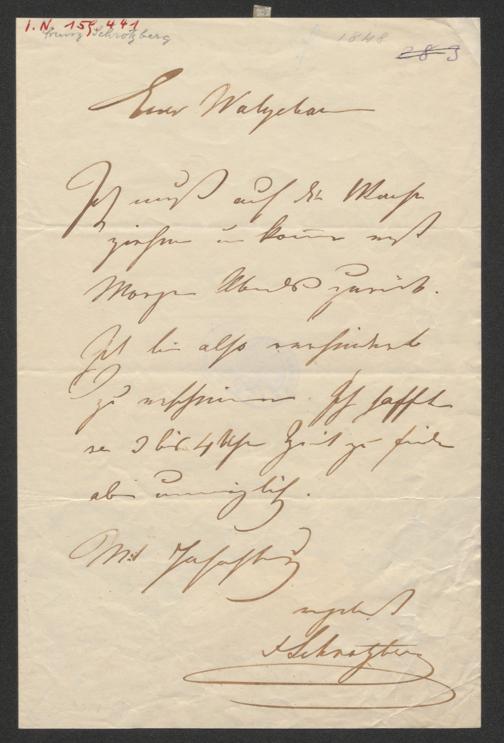 I. N. 158.441
Franz Schrotzberg
1848
283
Euer Wolgeboren
Ich muß auf die Wache
ziehen u komme erst
Morgen Abends zurück.
Ich bin also verhindert
zu erscheinen. Ich hoffte
3 bis 4 Uhr Zeit zu finden
aber unmöglich.
Mit Hochachtung
ergebenst
FSchrotzberg